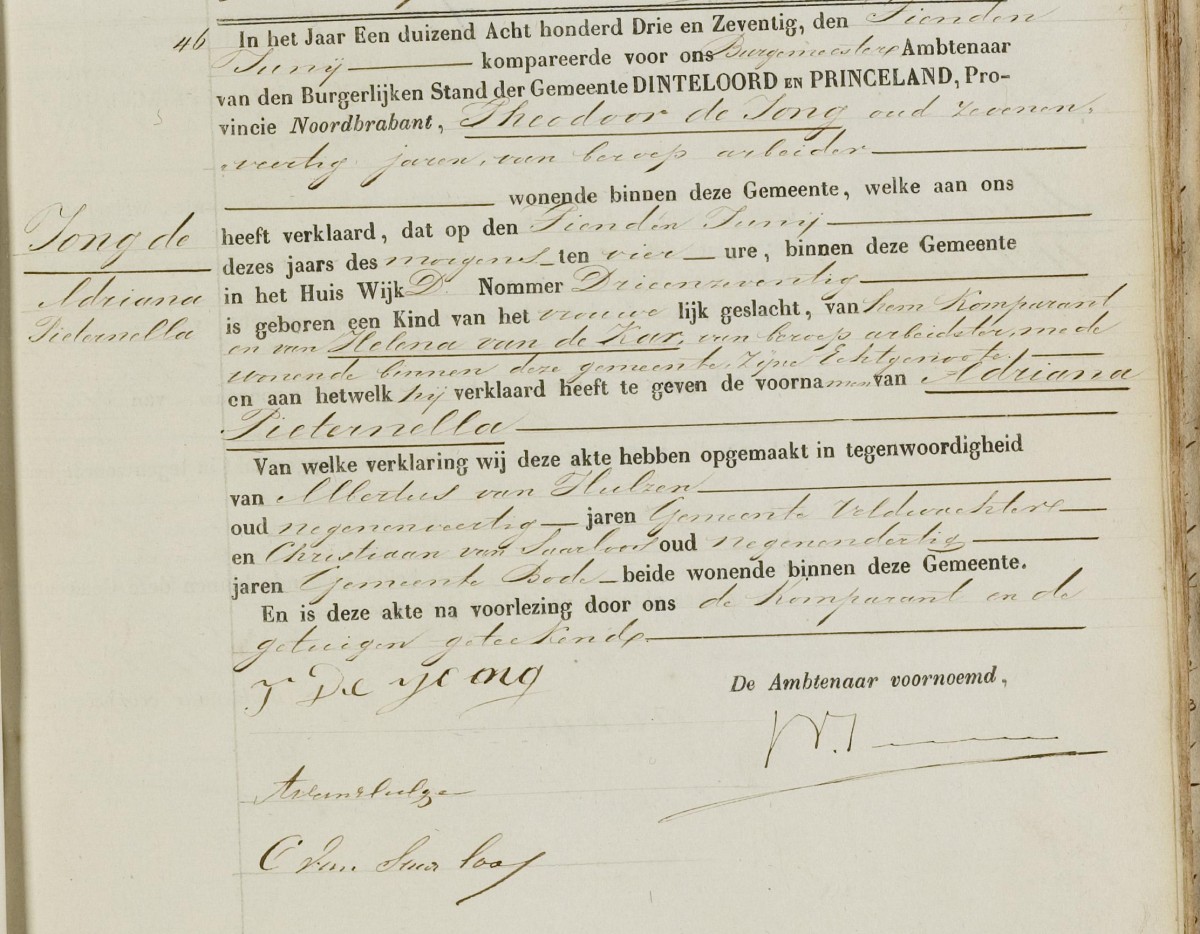 46 In het Jaar Een duizend Acht honderd Drie en Zeventig, den Tienden
Junij kompareerde voor ons Burgemeester Ambtenaar
van den Burgerlijken Stand der Gemeente DINTELOORD EN PRINCELAND, Pro-
vincie Noordbrabant, Theodoor de Jong oud zevenen-
veertig jaren, van beroep arbeider
wonende binnen deze Gemeente, welke aan ons
Jong de
heeft verklaard, dat op den Tienden Junij
dezes jaars des morgens ten vier ure, binnen deze Gemeente
Adriana
in het Huis Wijk D. Nommer Drieenzeventig
Pieternella
is geboren een Kind van het vrouwe lijk geslacht, van hem Komparant
en van Helena van de Kar, van beroep arbeidster, mede
wonende binnen deze gemeente, zijne Echtgenoote.
en aan hetwelk hij verklaard heeft te geven de voornamen van Adriana
Pieternella
Van welke verklaring wij deze akte hebben opgemaakt in tegenwoordigheid
van Albertus van Hulzen
oud negenenveertig jaren Gemeente Veldwachter
en Christiaan van Saarloos oud negenendertig
jaren Gemeente Bode beide wonende binnen deze Gemeente.
En is deze akte na voorlezing door ons de Komparant en de
getuigen geteekend
T De Jong
De Ambtenaar voornoemd,
C van Saarloos